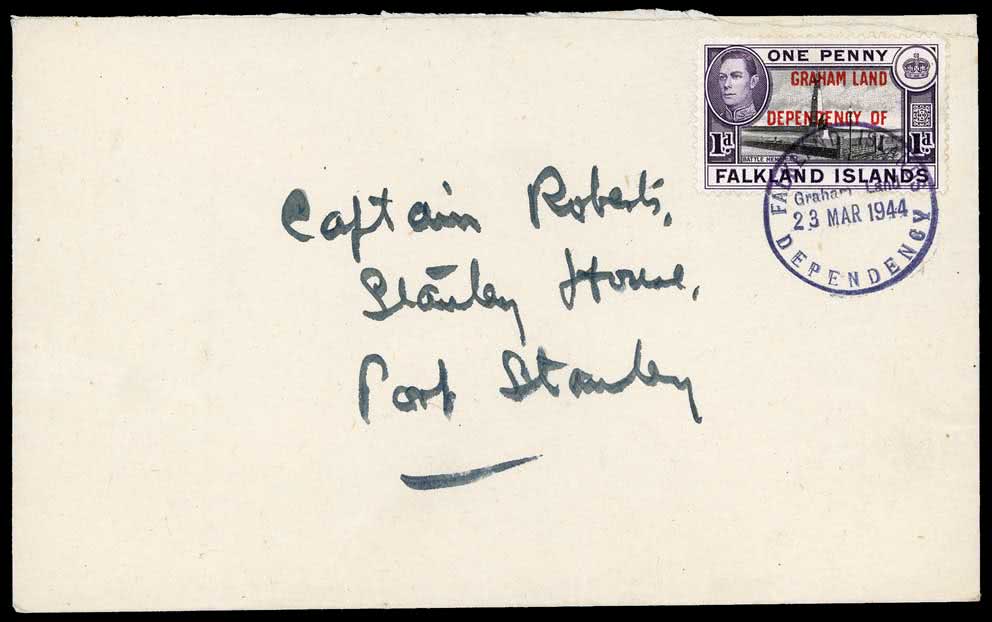 ONE PENNY
GRAHAM LAND
DEPENDENCY OF
1d. 1d.
FALKLAND ISLANDS
FALKLAND ISLANDS
Graham Land
23 MAR 1944
DEPENDENCY
Captain Roberts,
Stanley House,
Port Stanley